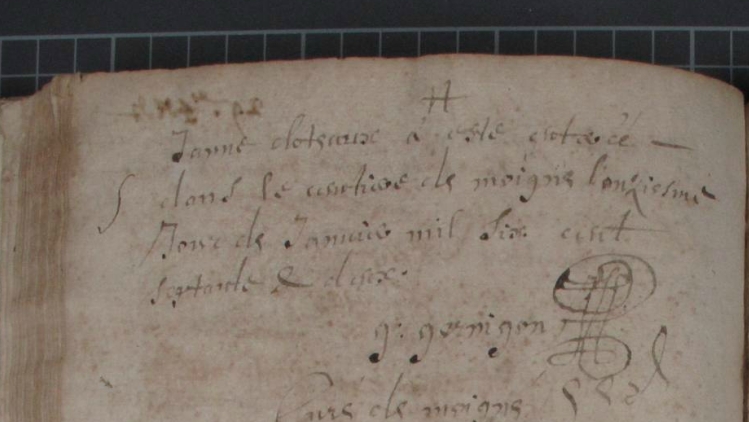 Janne cloteaux a esté enterée
dans le cimetiere de moigné l'onziesme
Jour de Janvier mil six cent
septante & deux.
g. gernigon
Curé de moigné